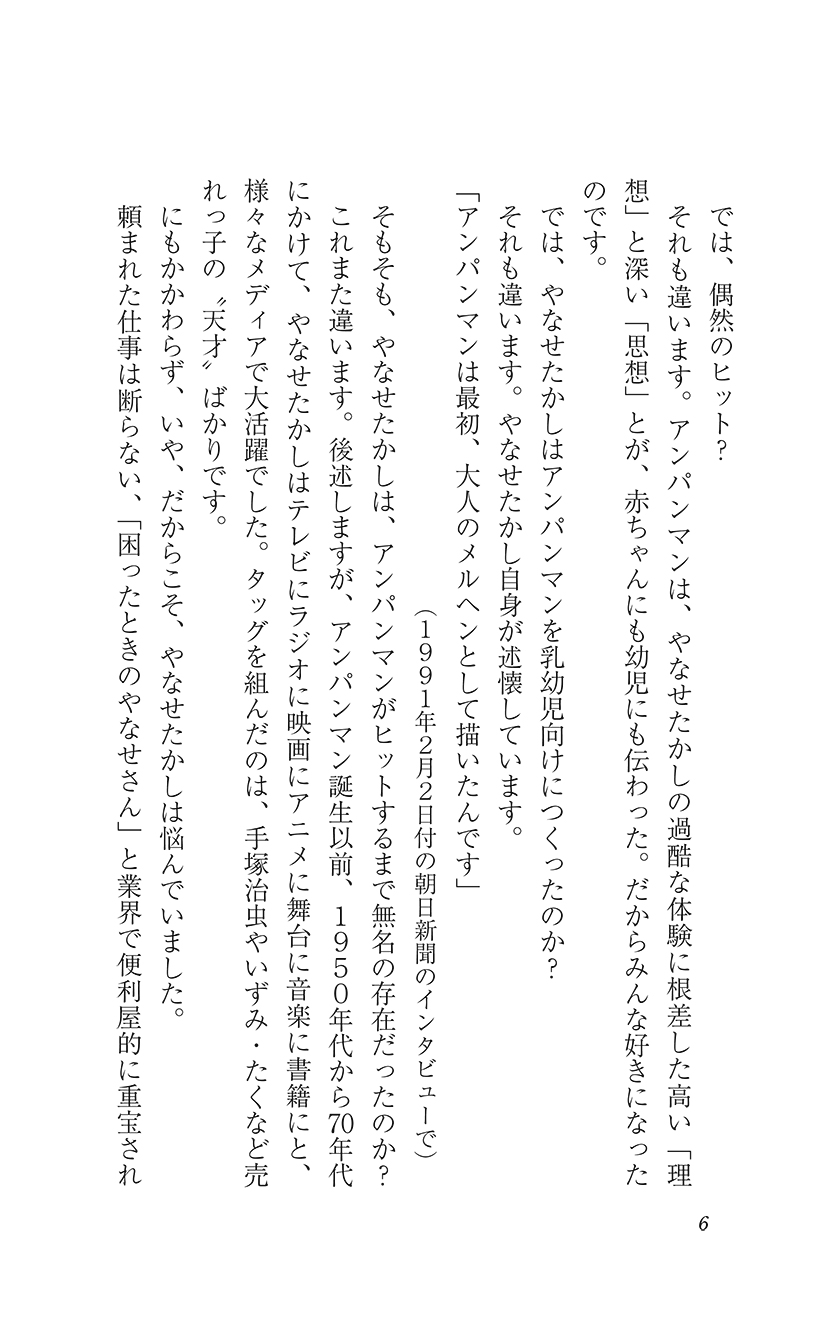 では、偶然のヒット？
それも違います。アンパンマンは、やなせたかしの過酷な体験に根差した高い「理
想」と深い「思想」とが、赤ちゃんにも幼児にも伝わった。だからみんな好きになった
のです。
では、やなせたかしはアンパンマンを乳幼児向けにつくったのか？
それも違います。やなせたかし自身が述懐しています。
「アンパンマンは最初、大人のメルヘンとして描いたんです」
（1991年2月2日付の朝日新聞のインタビューで）
そもそも、やなせたかしは、アンパンマンがヒットするまで無名の存在だったのか？
これまた違います。後述しますが、アンパンマン誕生以前、1950年代から70年代
にかけて、やなせたかしはテレビにラジオに映画にアニメに舞台に音楽に書籍にと、
様々なメディアで大活躍でした。タッグを組んだのは、手塚治虫やいずみ・たくなど売
れっ子の〝天才〟ばかりです。
にもかかわらず、いや、だからこそ、やなせたかしは悩んでいました。
頼まれた仕事は断らない、「困ったときのやなせさん」と業界で便利屋的に重宝され
6